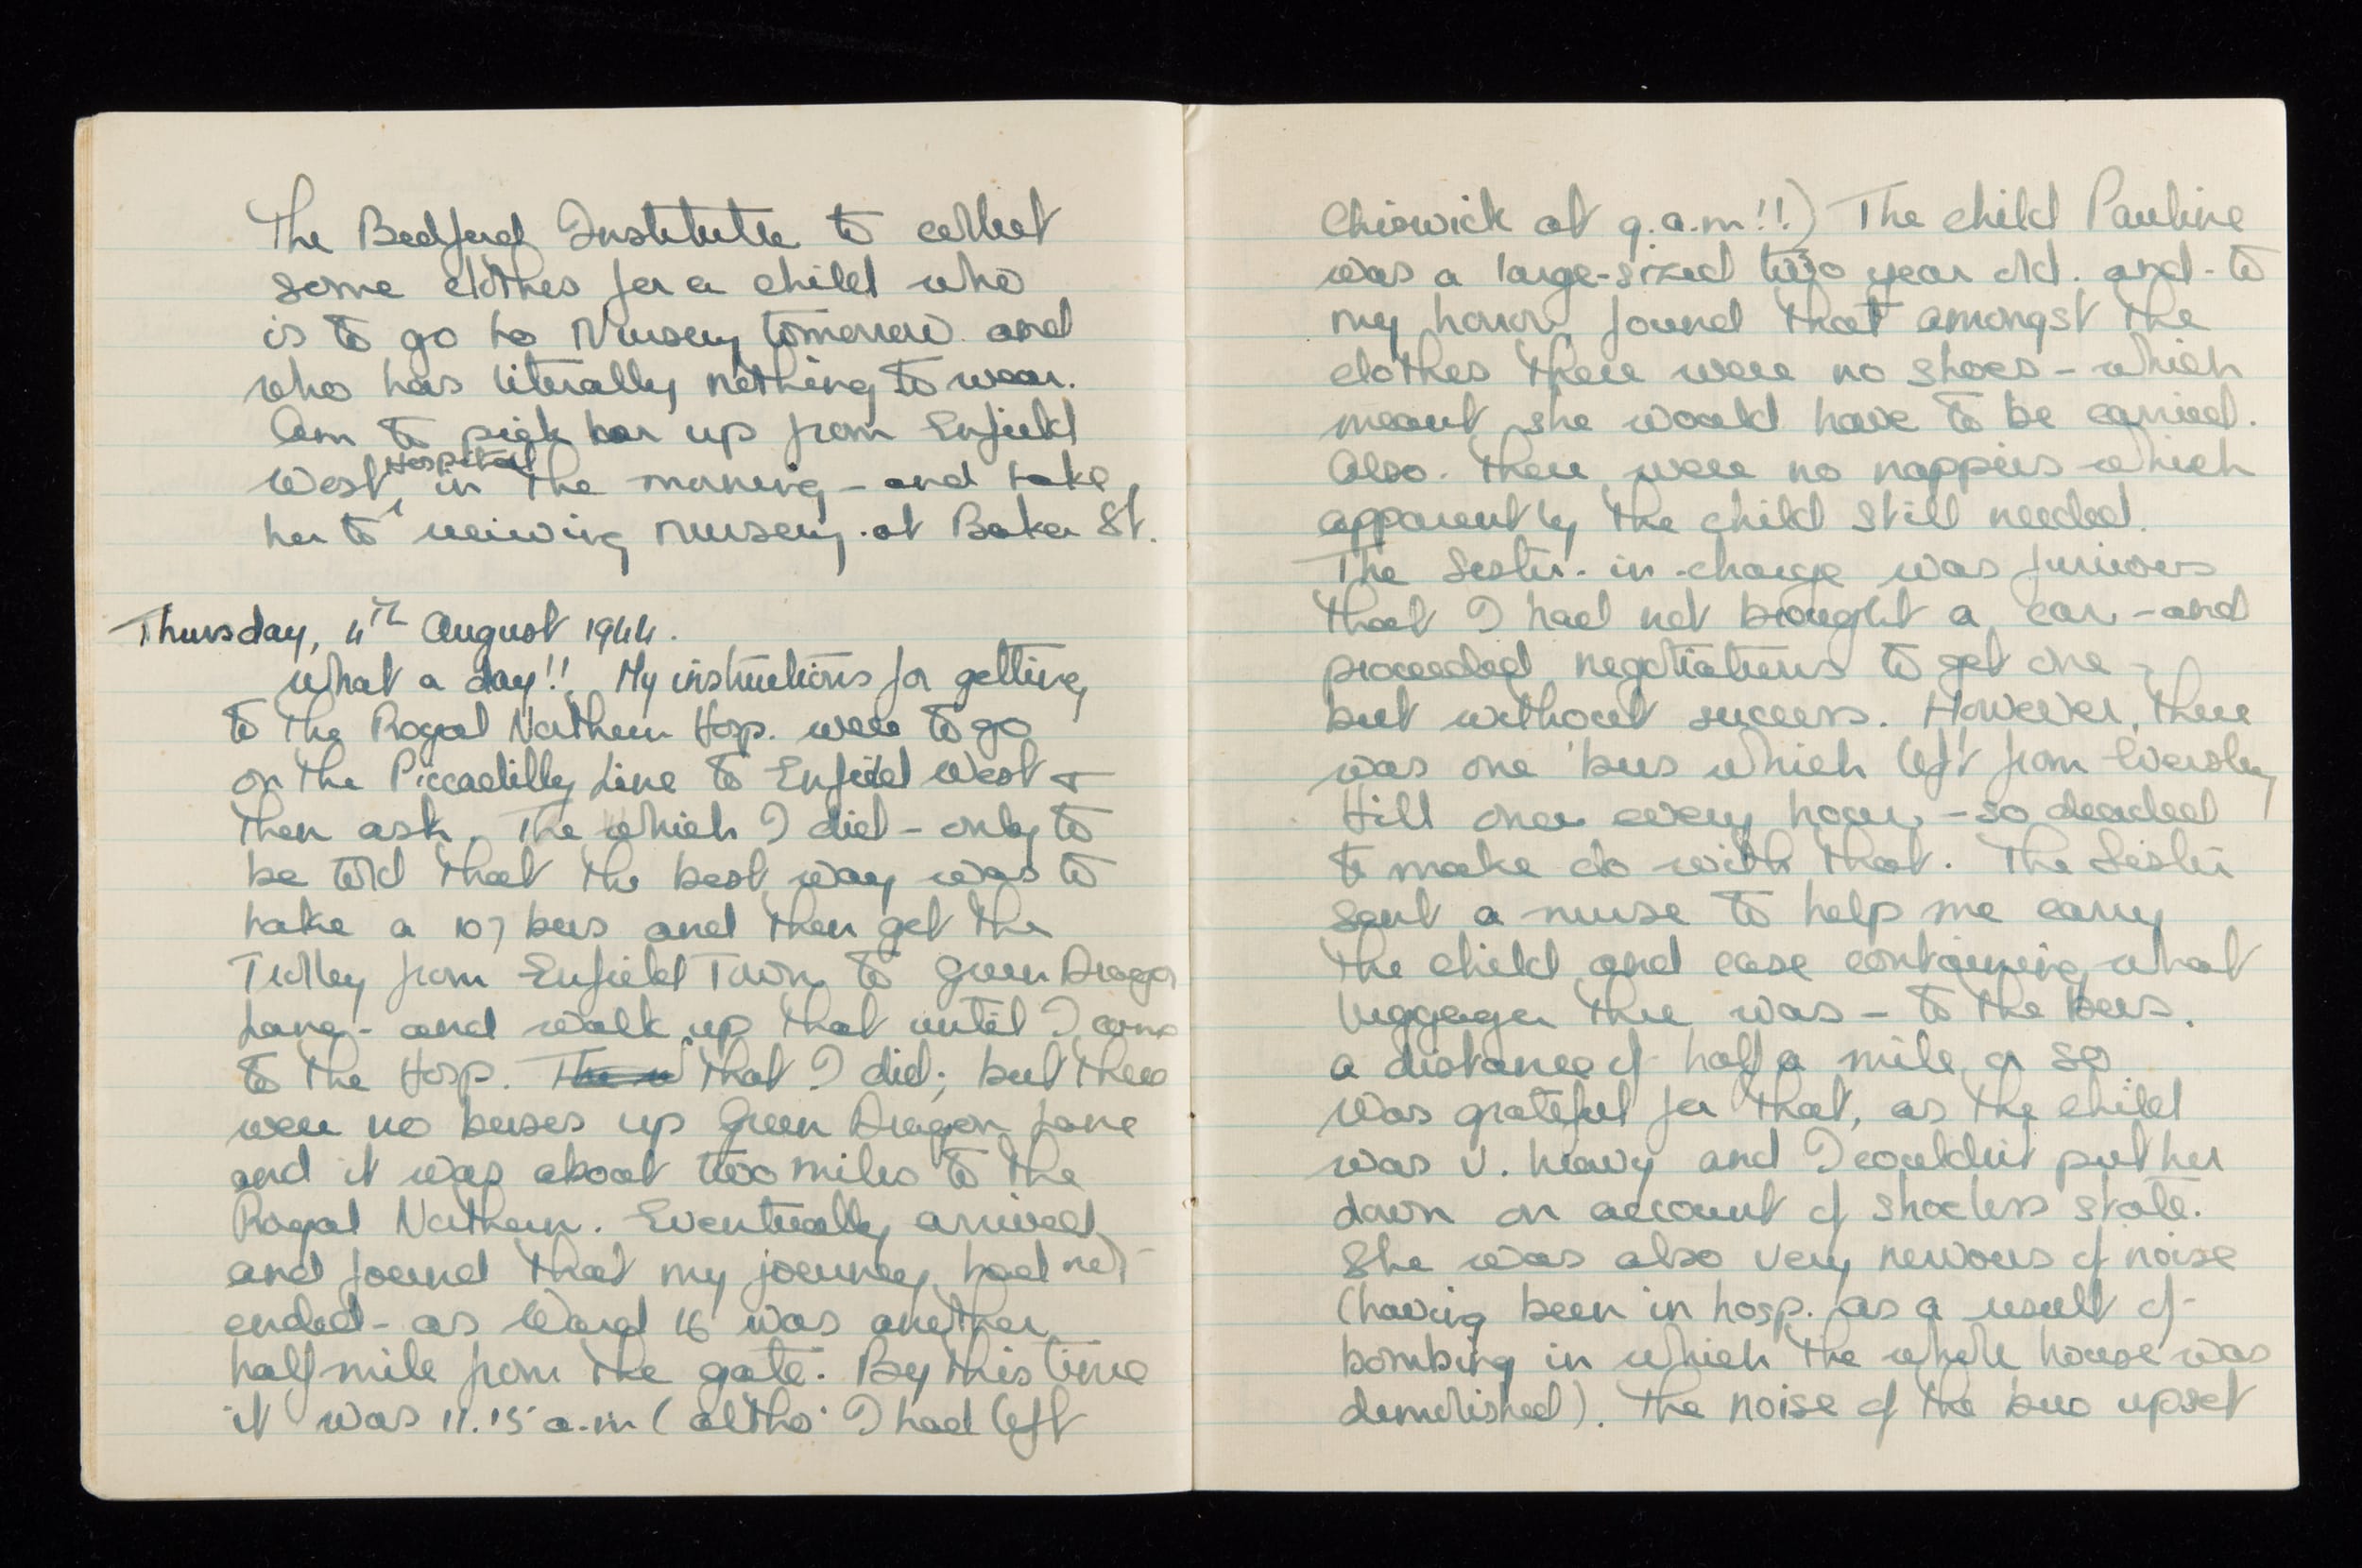 The Bedford Institute to collect
some clothes for a child who
is to go to Nursery tomorrow and
who has literally nothing to wear.
Am to pick her up from Enfield
West Hospital in the morning - and take
her to receiving nursery at Baker St.
Thursday, 4th August 1944.
What a day!! My instructions for getting
to the Royal Northern Hosp. were to go
on the Piccadilly Line to Enfield West &
then ask. The which I did - only to
be told that the best way was to
take a 107 bus and then get the
Trolley from Enfield Town to Green Dragon
Lane - and walk up that until I came
to the Hosp. That I did; but there
were no buses up Green Dragon Lane
and it was about two miles to the
Royal Northern. Eventually arrived
and found that my journey had not
ended - as Ward 16 was another
half mile from the gate. By this time
it was 11.15 a.m (altho' I had left
Chiswick at 9.a.m!!) The child Pauline
was a large-sized two year old. and - to
my horror, found that amongst the
clothes there were no shoes - which
meant she would have to be carried.
Also. there were no nappies which
apparently the child still needed.
The Sister-in-charge was furious
that I had not brought a car, - and
proceeded negotiations to get one -
but without success. However, there
was one 'bus which left from Eversley
Hill once every hour, - so decided
to make do with that. The Sister
sent a nurse to help me carry
the child and case containing what
luggage there was - to the bus,
a distance of half a mile or so.
Was grateful for that, as the child
was v. heavy and I couldn't put her
down on account of shoeless state.
She was also very nervous of noise
(having been in hosp. as a result of
bombing in which the whole house was
demolished). The noise of the bus upset